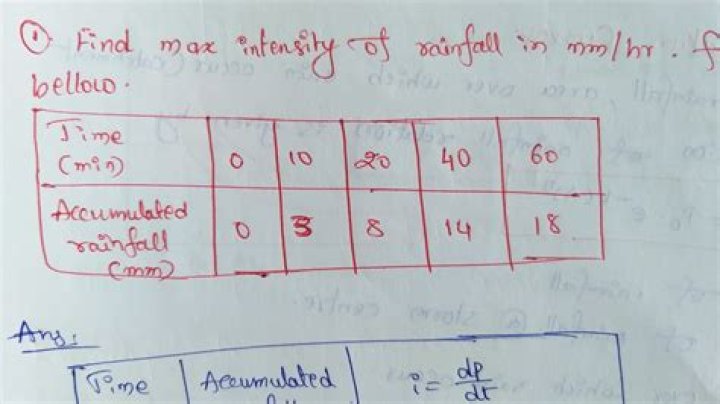 ① Find max intensity of rainfall in mm/hr. f
bellow.
Time (min) 0 10 20 40 60
Accumulated rainfall (mm) 0 3 8 14 18
Ans:
Time Accumulated i = dp/dt